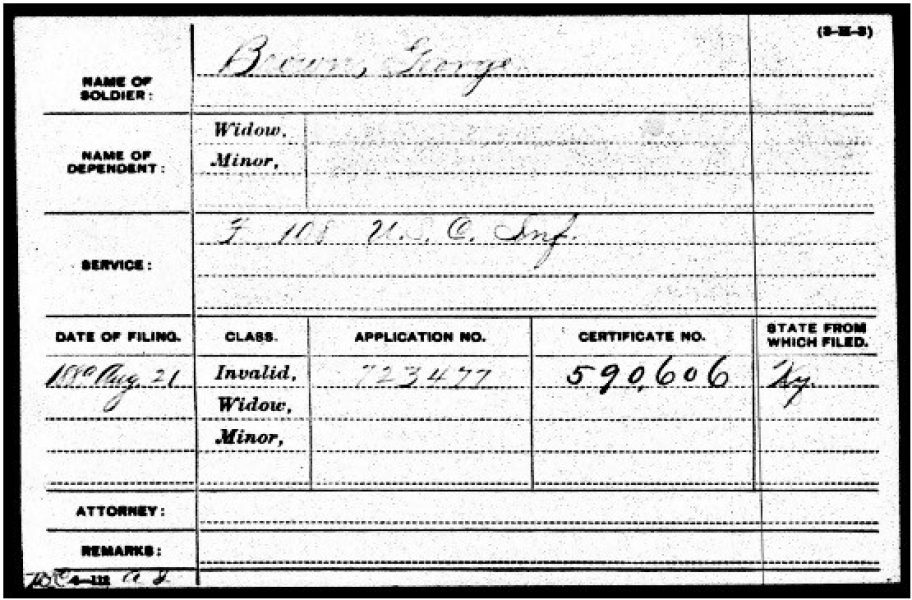 (3-M-3)
NAME OF SOLDIER: Brown, George
NAME OF DEPENDENT: Widow,
Minor,
SERVICE: F 108 U.S.C. Inf.
DATE OF FILING. CLASS. APPLICATION NO. CERTIFICATE NO. STATE FROM WHICH FILED.
Aug. 21 Invalid, 723477 590,606 Ky.
Widow,
Minor,
ATTORNEY:
REMARKS: